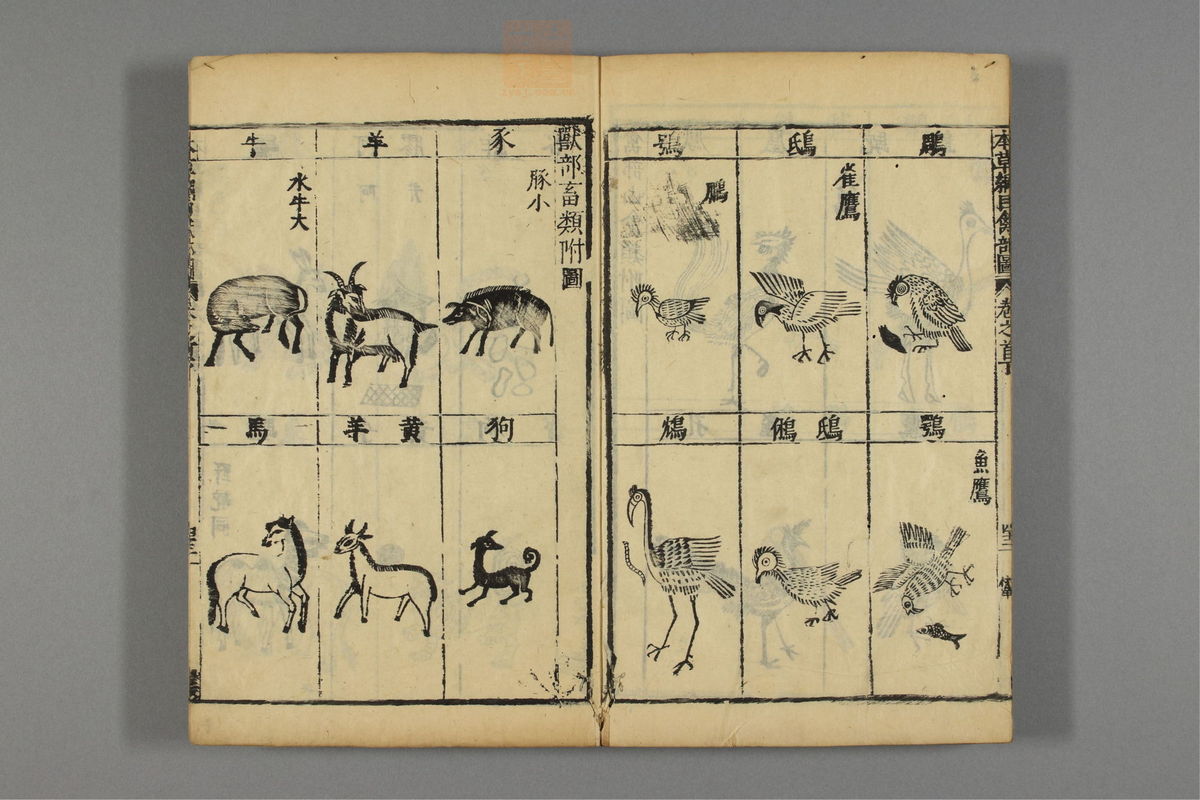 本草綱目禽部圖 卷之首下
鵰
雀鷹
鴟
鴞
鵩
鶚
魚鷹
鴟鵂
鴆
獸部畜類附圖
豕
豚小
羊
牛
水牛大
狗
黃羊
馬